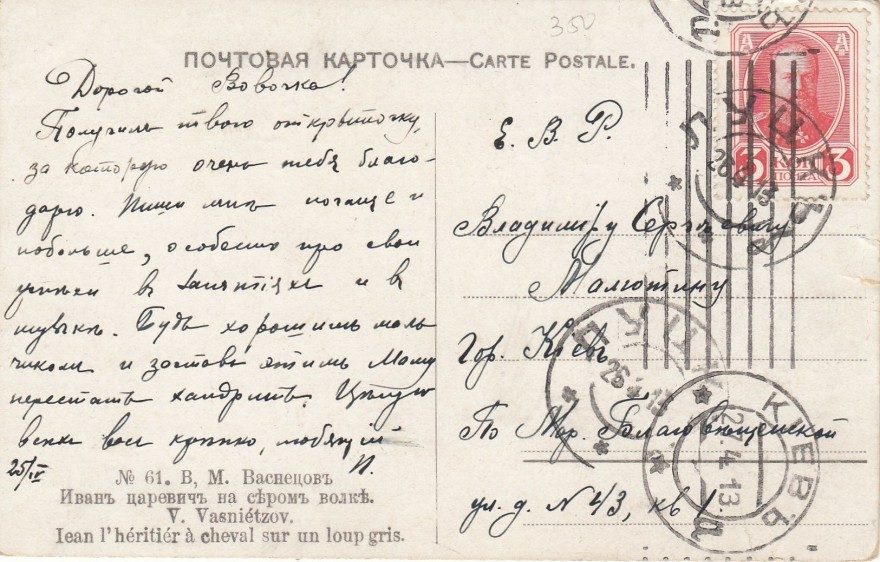 350
ПОЧТОВАЯ КАРТОЧКА—CARTE POSTALE.
Дорогой Вовочка!
Получилъ твою открыточку,
за которую очень тебя благо-
дарю. Пиши мнѣ почаще и
побольше, особенно про свои
успѣхи въ занятіяхъ и въ
музыкѣ. Будь хорошимъ маль
чикомъ и заставь этимъ Маму
перестать хандрить. Цѣлую
всѣхъ васъ крѣпко, любящій
25/IV
И.
№ 61. В, М. Васнецовъ
Иванъ царевичъ на сѣромъ волкѣ.
V. Vasniétzov.
Iean l'héritiér à cheval sur un loup gris.
Е. В. Р.
Владиміру Сергѣевичу
Малютину
Гор. Кіевъ
По Мар. Благовѣщенской
ул. д. N 43, кв 1
3 КОП 3
ПОЧТА
ЛУЦКЪ
26 4 13
ЛУЦКЪ
26 4 13
КІЕВЪ
27.4.13.